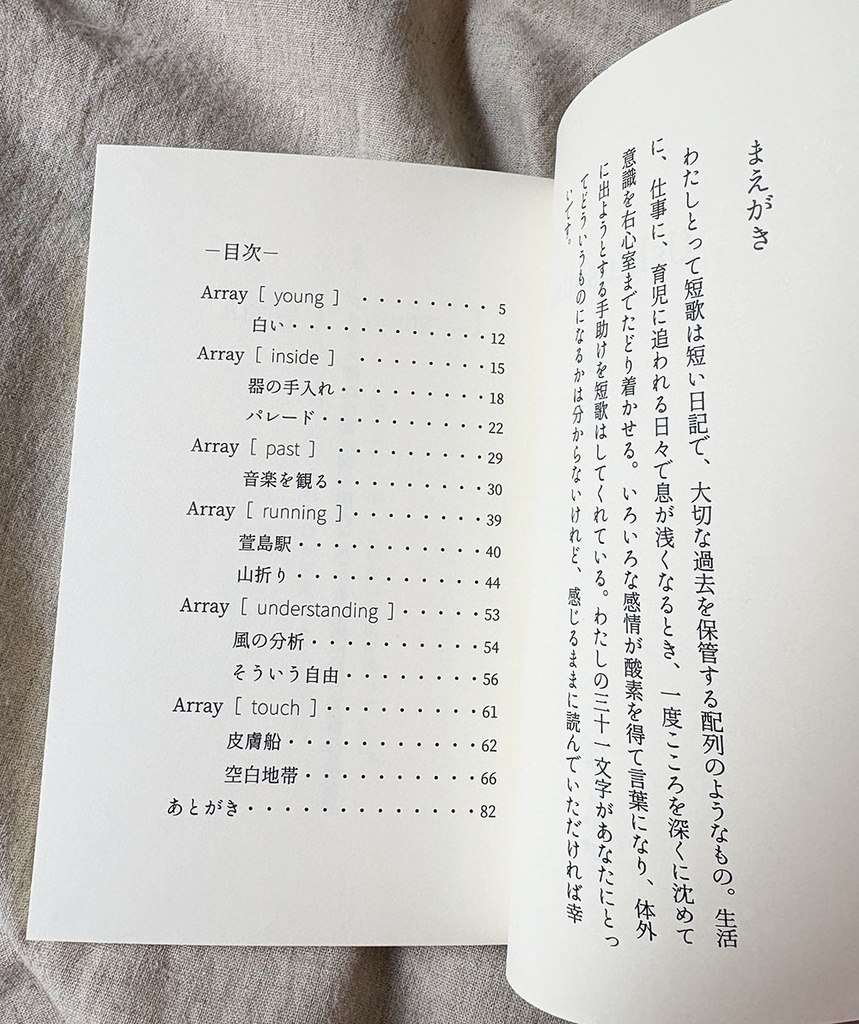 まえがき
わたしとって短歌は短い日記で、大切な過去を保管する配列のようなもの。生活
に、仕事に、育児に追われる日々で息が浅くなるとき、一度こころを深くに沈めて
意識を右心室までたどり着かせる。いろいろな感情が酸素を得て言葉になり、体外
に出ようとする手助けを短歌はしてくれている。わたしの三十一文字があなたにとっ
てどういうものになるかは分からないけれど、感じるままに読んでいただければ幸
いです。
―目次―
Array [ young ] ・・・・・・・・5
白い・・・・・・・・・・・・12
Array [ inside ] ・・・・・・・・15
器の手入れ・・・・・・・・・18
パレード・・・・・・・・・・22
Array [ past ] ・・・・・・・・・29
音楽を観る・・・・・・・・・30
Array [ running ]・・・・・・・・39
萱島駅・・・・・・・・・・・40
山折り・・・・・・・・・・・44
Array [ understanding ]・・・・・53
風の分析・・・・・・・・・・54
そういう自由・・・・・・・・56
Array [ touch ]・・・・・・・・・61
皮膚船・・・・・・・・・・・62
空白地帯・・・・・・・・・・66
あとがき・・・・・・・・・・・・・82